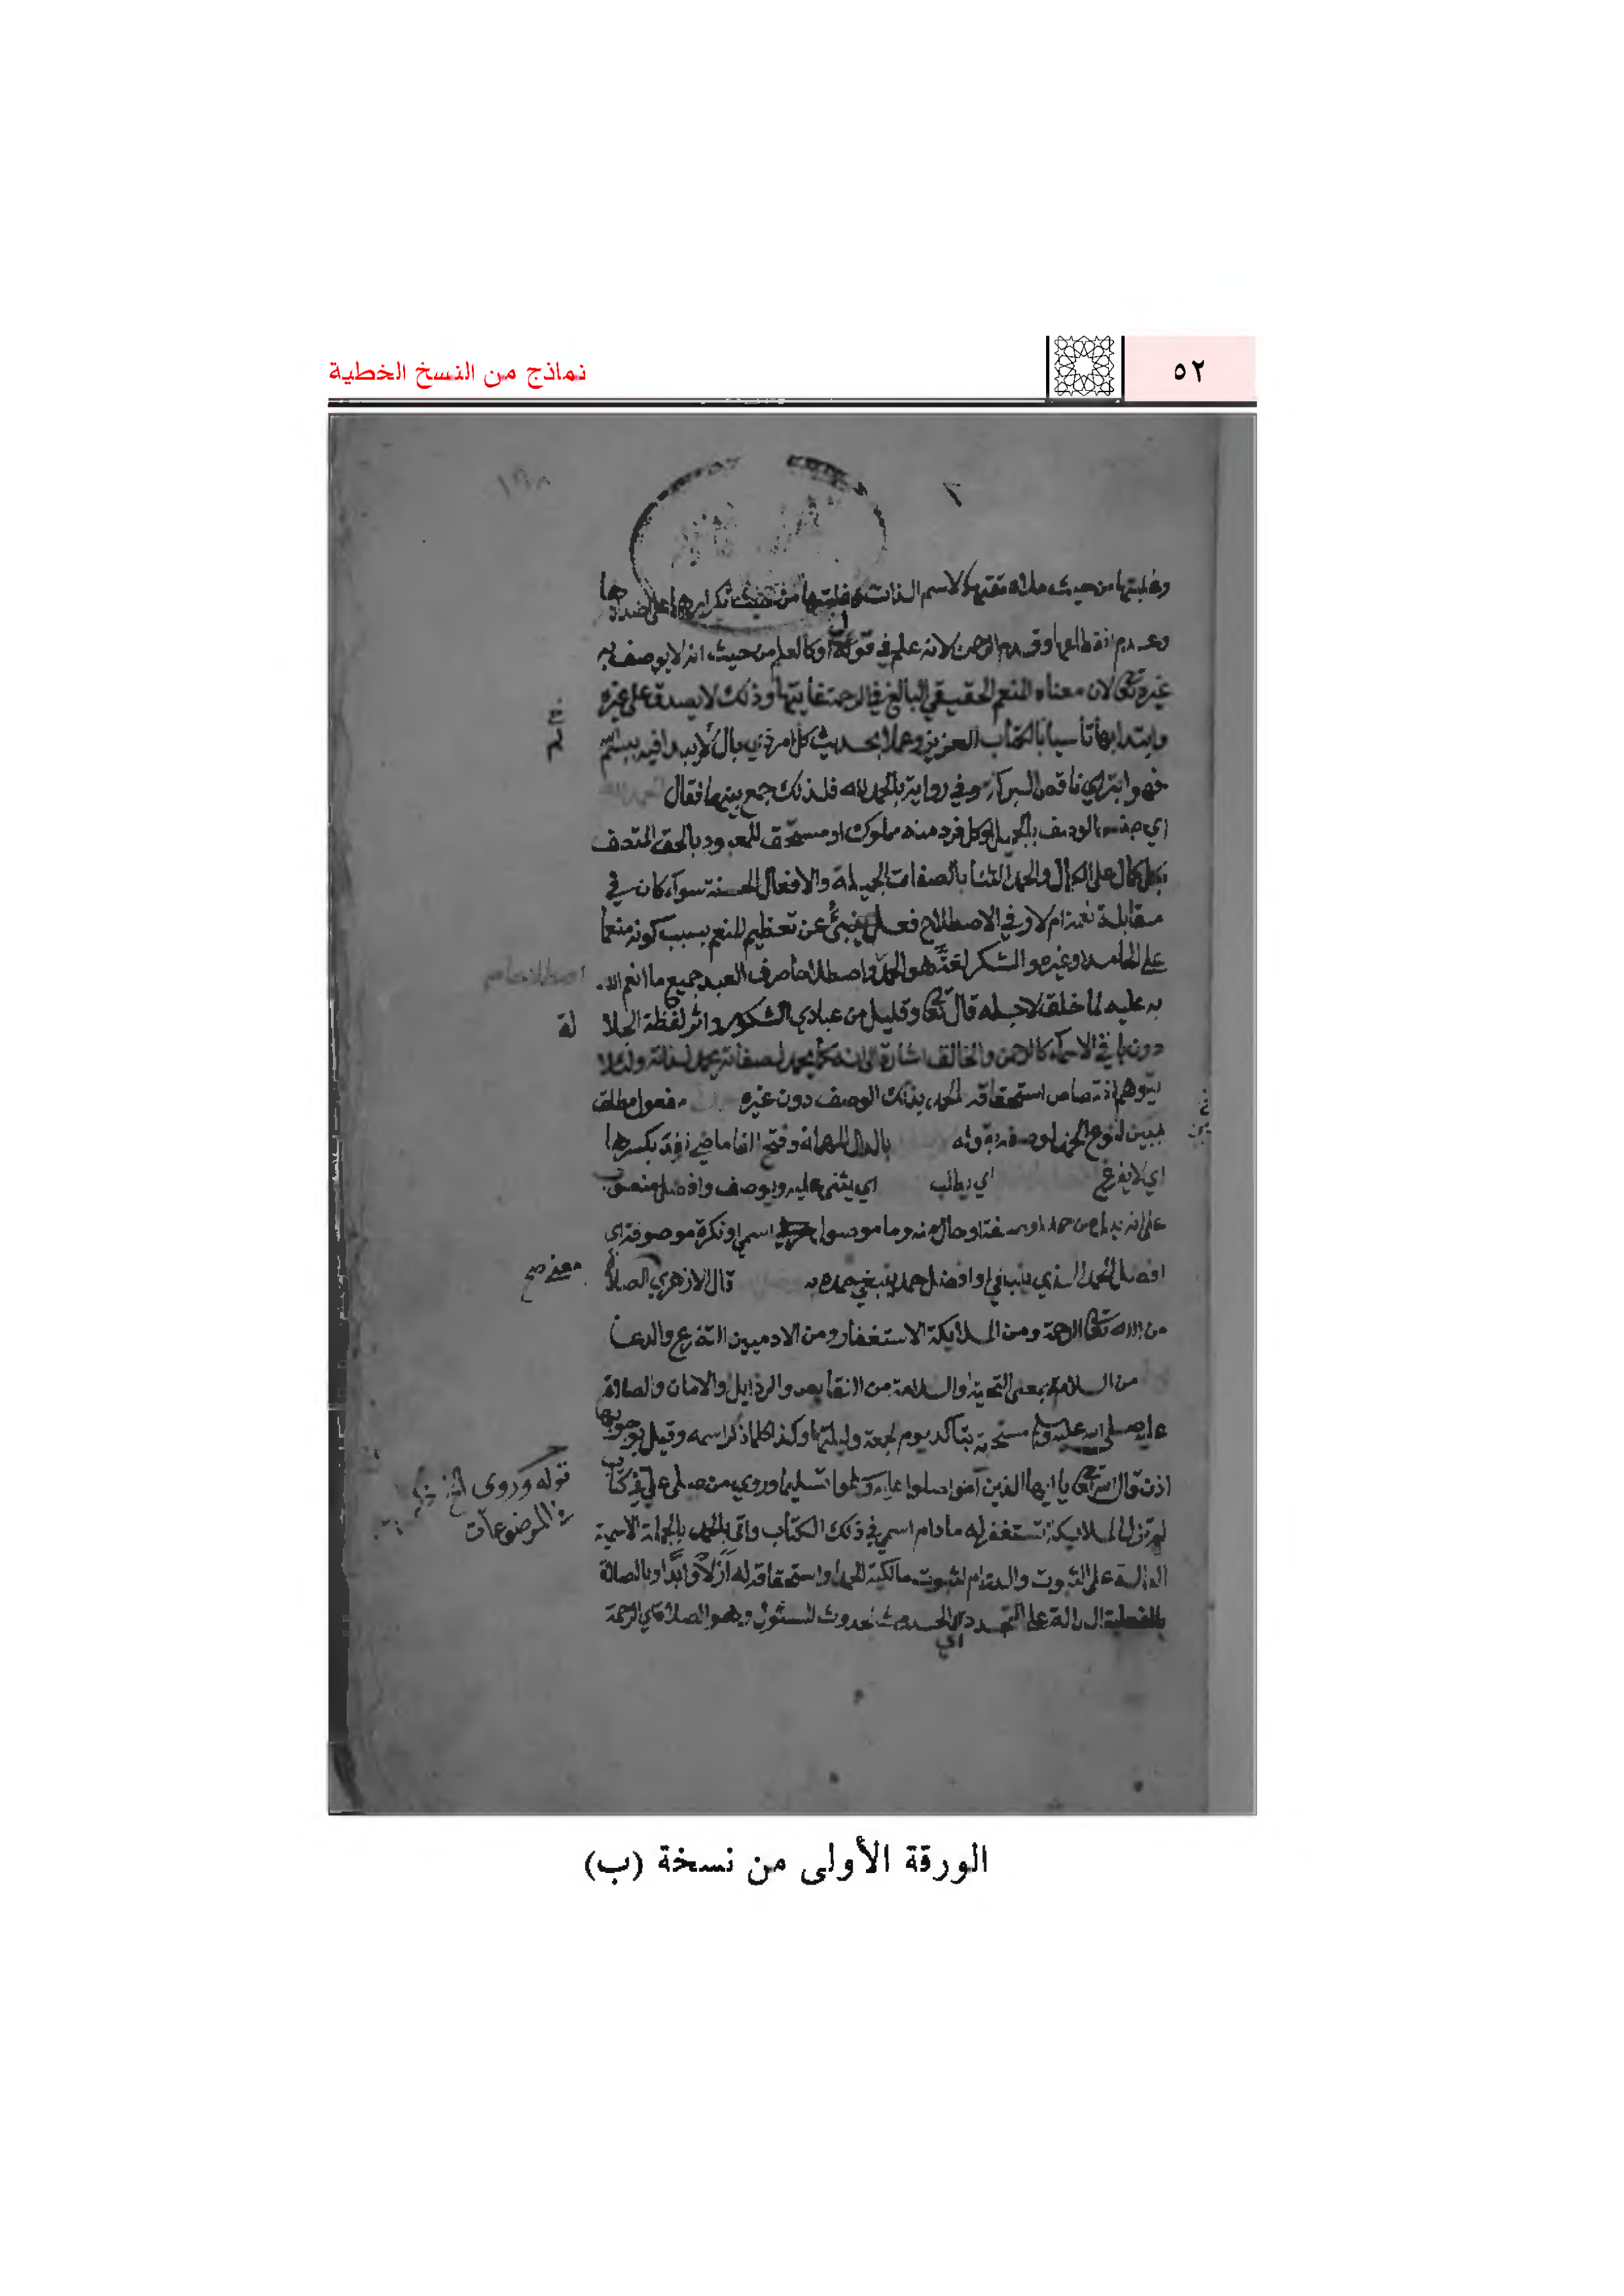 ٥٢
نماذج من النسخ الخطية
وعدم انقطاعها وقدم الرحمن لانه علم في قول او كالعلم من حيث انه لا يوصف به
غيره تعالى لان معناه المنعم الحقيقي البالغ في الرحمة غايتها وذلك لا يصدق على غيره
وابتدا بها تأسيا بالكتاب العزيز وعملا بحديث كل امر ذي بال لا يبدا فيه ببسم الله
فهو ابتر اي ناقص البركة وفي رواية بالحمد لله فلذلك جمع بينهما فقال
اي جنس الوصف بالجميل او كل فرد منه مملوك او مستحق للمعبود بالحق المتصف
بكل كمال على الكمال والحمد الثنا بالصفات الجميلة والافعال الحسنة سواء كان في
مقابلة نعمة ام لا وفي الاصطلاح فعل ينبئ عن تعظيم المنعم بسبب كونه منعما
على الحامد او غيره والشكر لغة هو الحمد واصطلاحا صرف العبد جميع ما انعم الله
به عليه لما خلق لاجله قال تعالى وقليل من عبادي الشكور واثر لفظة الجلا
لة
دون باقي الاسماء كالرحمن والخالق اشارة الى انه كما يحمد لصفاته يحمد لذاته ولئلا
يتوهم اختصاص استحقاقه الحمد بذلك الوصف دون غيره مفعول مطلق
مبين لنوع الحمد لوصفه بقوله بالدال المهملة وفتح الفا ماضي نفد بكسرها
اي لا يفرغ اي يطلب اي يثنى عليه ويوصف وافضل منصوب
على انه بدل من حمدا او صفة او حال منه وما موصول اسمي او نكرة موصوفة اي
افضل الحمد الذي ينبغي او افضل حمد ينبغي حمده به قال الازهري الصلاة
معنى صح
من الله تعالى الرحمة ومن الملايكة الاستغفار ومن الادميين التضرع والدعا
من السلام بمعنى التحية او السلامة من النقايص والرذايل والامان والصلاة
عليه صلى الله عليه وسلم مستحبة يتأكد يوم الجمعة وليلتها وكذا كلما ذكر اسمه وقيل بوجوبها
اذن قال الله تعالى يا ايها الذين آمنوا صلوا عليه وسلموا تسليما وروي من صلى علي في كتاب
قوله وروى الخ
الموضوعات
لم تزل الملايكة تستغفر له ما دام اسمي في ذلك الكتاب واتى بالحمد بالجملة الاسمية
الدالة على الثبوت والدوام لثبوت مالكية الحمد او استحقاقه له أزلا وابدا وبالصلاة
بالفعلية الدالة على التجدد اي الحدوث لحدوث المسئول وهو الصلاة اي الرحمة
الورقة الأولى من نسخة (ب)